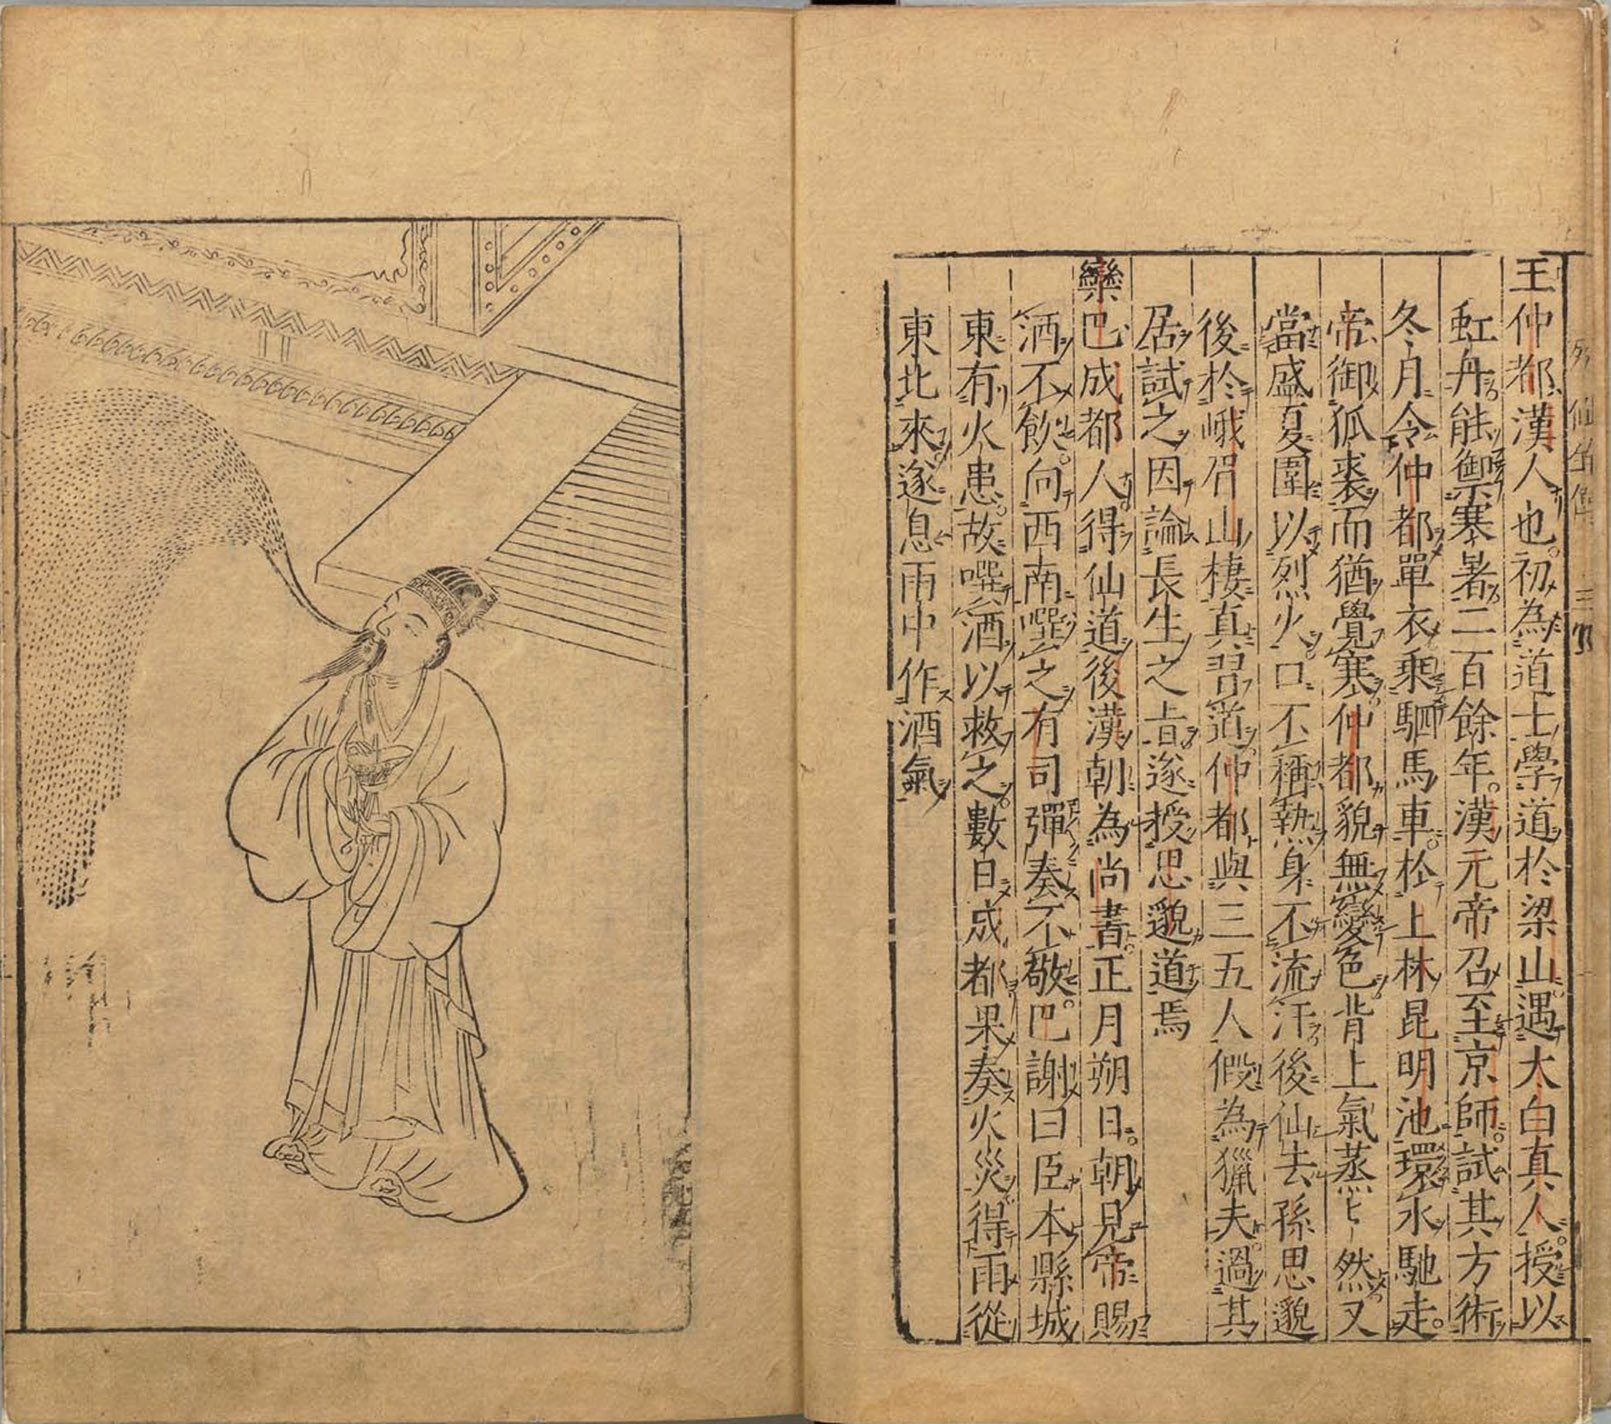 王仲都漢人也初為道士學道於梁山遇太白真人授以
虹丹能禦寒暑二百餘年漢元帝召至京師試其方術
冬月令仲都單衣乘駟馬車於上林昆明池環氷馳走
帝御狐裘而猶覺寒仲都貌無變色背上氣蒸〻然又
當盛夏圍以烈火口不稱熱身不流汗後仙去孫思邈
後於峨眉山棲真習道仲都與三五人假為獵夫過其
居試之因論長生之旨遂授思邈道焉
欒巴成都人得仙道後漢朝為尚書正月朔日朝見帝賜
酒不飲向西南噀之有司彈奏不敬巴謝曰臣本縣城
東有火患故噀酒以救之數日成都果奏火災得雨從
東北來遂息雨中作酒氣